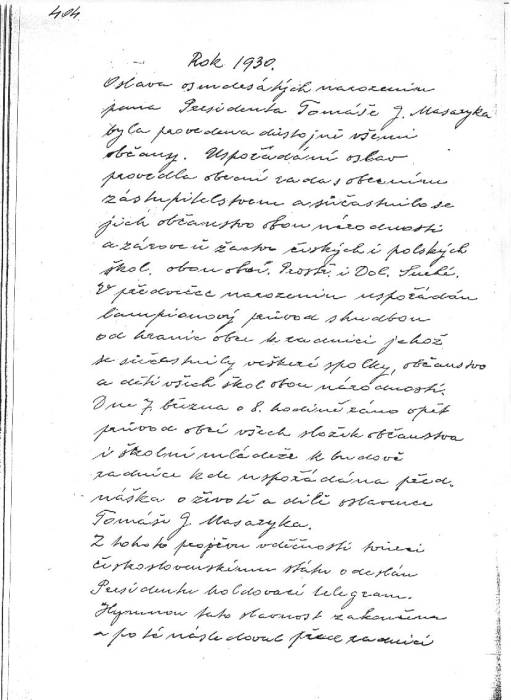 404.
Rok 1930.
Oslava osmdesátých narozenin
pana Presidenta Tomáše G. Masaryka
byla provedena důstojně všemi
občany. Uspořádání oslav
provedla obecní rada s obecním
zastupitelstvem a súčastnilo se
jich občanstvo obou národností
a zároveň žactvo českých i polských
škol. obou obcí. Prostř. i Dol. Suché.
V předvečer narozenin uspořádán
lampionový průvod s hudbou
od hranic obce k radnici jehož
se súčastnily veškeré spolky, občanstvo
a děti všech škol obou národností.
Dne 7. března o 8. hodině ráno opět
průvod obcí všech složek občanstva
i školní mládeže k budově
radnice kde uspořádána před-
náška o životě a díle oslavence
Tomáše G. Masaryka.
Z tohoto projevu vděčnosti tvůrci
československému státu odeslán
Presidentu holdovací telegram.
Hymnou tato slavnost zakončena
a po té následoval před radnicí